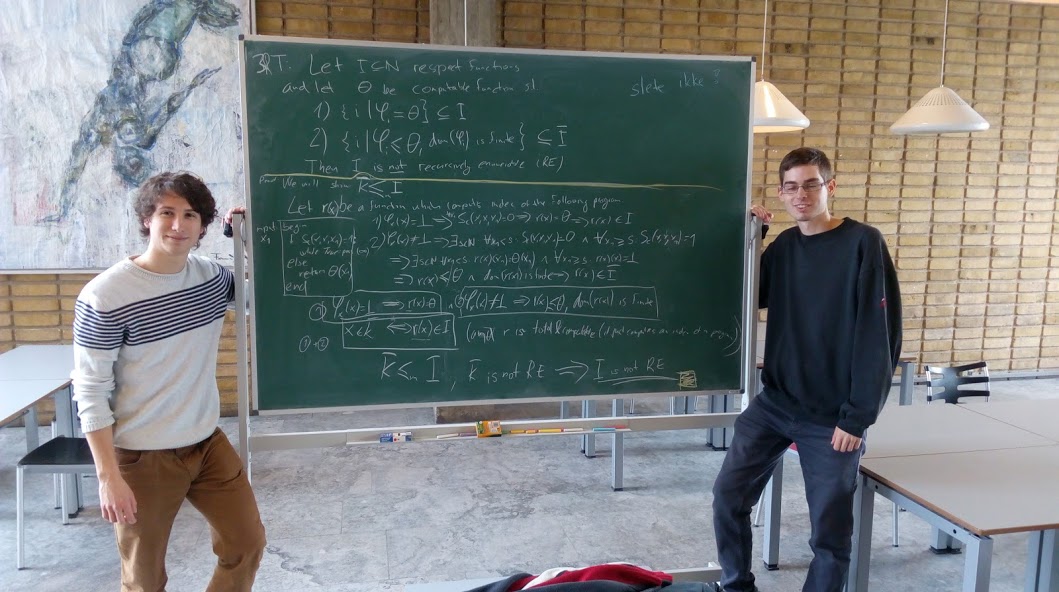 3RT: Let I⊆N respect functions
slete ikke?
and let θ be computable function st
1) {i | φᵢ = θ} ⊆ I
2) {i | φᵢ ≤ θ, dom(φᵢ) is finite} ⊆ Ī
Then I is not recursively enumerable (RE)
Proof: We will show K̄ ≤ I
Let r(x) be a function which computes index of the following program
input x₁
begin
else
return θ(x₁)
end
1) φₓ(x)=⊥ ⟹ Sₜ(x,x,xₙ)=0 ⟹ r(x)=θ ⟹ r(x)∈I
2) φₓ(x)≠⊥ ⟹ ∃s∈N ∀xₙ<s: Sₜ(x,x,xₙ)=0 ∧ ∀xₙ≥s Sₜ(x,x,xₙ)=1
⟹ ∃s∈N ∀xₙ<s r(x)(xₙ)=θ(xₙ) ∧ ∀xₙ≥s r(x)(xₙ)=⊥
⟹ r(x) ≤ θ ∧ dom(r(x)) is finite ⟹ r(x)∈Ī
① φₓ(x)=⊥ ⟹ r(x)=θ ∧ ② φₓ(x)≠⊥ ⟹ r(x)≤θ, dom(r(x)) is finite
①+② x∈K̄ ⟺ r(x)∈I (and r is total & computable (it just computes an index of a program))
K̄ ≤ₘ I, K̄ is not RE ⟹ I is not RE